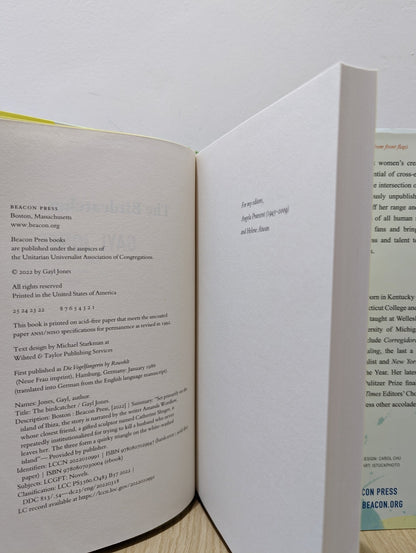 BEACON PRESS
Boston, Massachusetts
www.beacon.org
Beacon Press books
are published under the auspices of
the Unitarian Universalist Association of Congregations.
© 2022 by Gayl Jones
All rights reserved
Printed in the United States of America
25 24 23 22 8 7 6 5 4 3 2 1
This book is printed on acid-free paper that meets the uncoated
paper ANSI/NISO specifications for permanence as revised in 1992.
Text design by Michael Starkman at
Wilsted & Taylor Publishing Services
First published as Die Vogelfängerin by Rowohlt
(Neue Frau imprint), Hamburg, Germany: January 1986
(translated into German from the English language manuscript).
Names: Jones, Gayl, author.
Title: The birdcatcher / Gayl Jones.
Description: Boston : Beacon Press, [2022] | Summary: "Set primarily on the
island of Ibiza, the story is narrated by the writer Amanda Wordlaw,
whose closest friend, a gifted sculptor named Catherine Shuger, is
repeatedly institutionalized for trying to kill a husband who never
leaves her. The three form a quirky triangle on the white-washed
island"— Provided by publisher.
Identifiers: LCCN 2022010991 | ISBN (hardcover ; acid-free
paper) | ISBN 9780807030004 (ebook)
Subjects: LCGFT: Novels.
Classification: LCC PS3560.O483 B57 2022 |
DDC 813/.54—dc23/eng/20220318
LC record available at https://lccn.loc.gov/2022010991
For my editors,
Angela Praesent (1945–2009)
and Helene Atwan
from front flap)
women's cre
ntial of cross-e
e intersection
ously unpublish
ff her range and
of all human
fans and bring
ns and talent to
orn in Kentucky
cticut College and
taught at Wellesl
ersity of Michig
clude Corregidora
aling, the last a
list and New York
the Year. Her late
ulitzer Prize fina
Times Editors' Cho
ss other accolade
DESIGN: CAROL CHU
ART: ISTOCKPHOTO
CON PRESS
BEACON.ORG